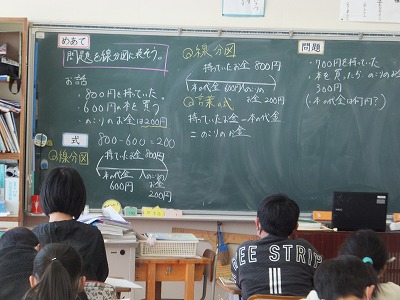 めあて
問題を線分図に表そう。
お話
・800円を持っていた
・600円の本を買う
・のこりのお金は200円
式
800-600=200
Q線分図
持っていたお金 800円
本の代金 600円
のこりのお金 200円
Q線分図
持っていたお金 800円
本の代金 600円
のこりのお金 200円
Q言葉の式
持っていたお金-本の代金
=のこりのお金
問題
・700円を持っていた
・本を買ったら のこりのお金
300円
(・本の代金は何円?)
FREE STRIP